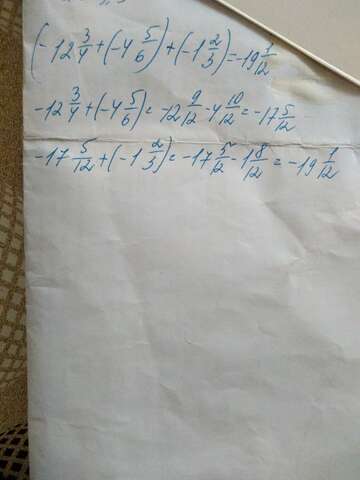 (-12 3/4 + (-4 5/6) + (-1 2/3) = -19 1/12
-12 3/4 + (-4 5/6) = -12 9/12 - 4 10/12 = -17 5/12
-17 5/12 + (-1 2/3) = -17 5/12 - 1 8/12 = -19 1/12